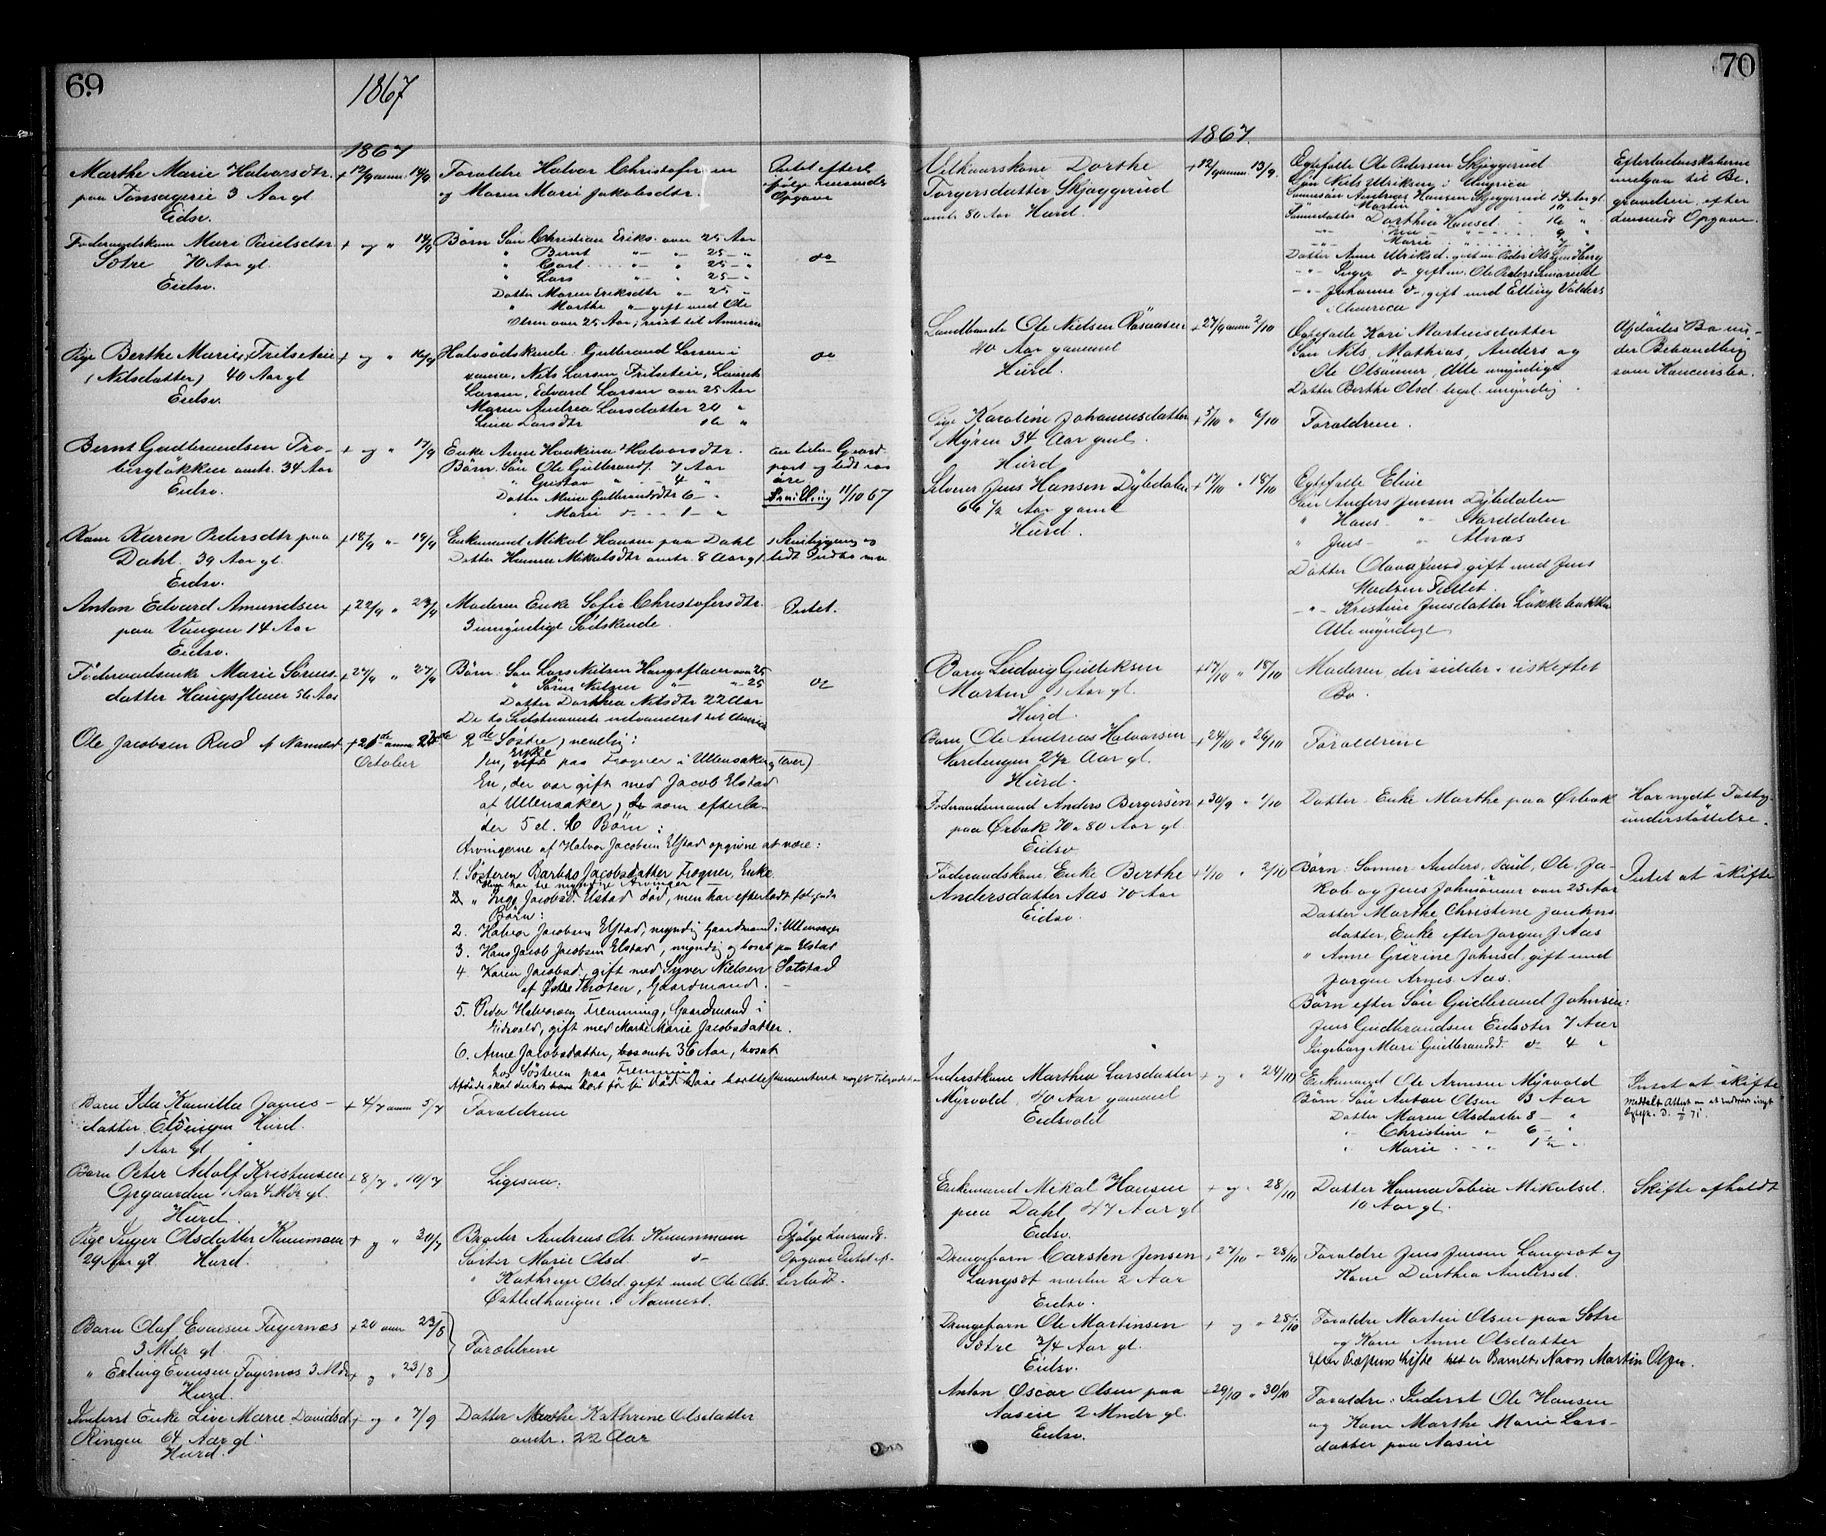 69
1867
1867
Marthe Marie Halvorsdtr.
paa Tonsagerie 3 Aar gl
Eidsv.
+ 12/9 anm. 14/9
Forældre Halvor Christofersen
og Maren Marie Jakobsdtr.
Intet efterl
ifølge Lensmds
Opgave
Føderaadskone Mari Paulsdtr
Sætre 70 Aar gl.
Eidsv.
+ og " 14/9
Børn Søn Christian Eriks. over 25 Aar
" Bernt " - " 25 - "
" Carl " - " 25 - "
" Lars " - " 25 - "
Datter Maren Eriksdtr " - 25 -
" Marthe " gift med Ole
Olsen over 25 Aar, reist til Amerika
do
Pige Berthe Marie Fritseteie
(Nilsdatter) 40 Aar gl
Eidsv.
+ og " 16/9
Halvsødskende: Gulbrand Larsen i
Nils Larsen Fritseteie, Laurets
Larsen, Edvard Larsen over 25 Aar
Maren Andrea Larsdatter 20 "
Lina Larsdtr 16 "
do
Bernt Gudbrandsen Tro-
bergløkken omtr. 34 Aar
Eidsv.
+ og " 17/9
Enke Anne Haakine Halvorsdtr.
Børn: Søn Ole Gulbrands. 7 Aar
" Gustav " - 4 "
Datter Mina Gulbrandsdtr 6 - "
" Marie do - 1 - "
en liden Gaard-
part og lidt
øre
11/10 67
Kone Karen Pedersdtr paa
Dahl. 39 Aar gl.
Eidsv.
+ 18/9 " 19/9
Enkemand Mikal Hansen paa Dahl
Datter Hanna Mikalsdtr omtr. 8 Aar gl
lidt Indbo
Anton Edvard Amundsen
paa Vangen 14 Aar
Eidsv.
+ 22/9 " 23/9
Moderen Enke Sofie Christofersdtr.
3 umyndige Sødskende.
Intet.
Føderaadsenke Marie Sørens
datter Haugsfluen 56 Aar
+ 27/9 " 27/9
Børn: Søn Lars Nilsen Haugsfluen over 25
" Søren Nilsen " - 25
Datter Dorthea Nilsdtr 22 Aar
De to Sidstnævnte udvandret til America
do
Ole Jacobsen Rud af Nannestad
+ 21de anm 23de
October
2de Søstre, nemlig:
En, Enke paa Trogner i Ullensaker (over)
En, der var gift med Jacob Elstad
af Ullensaker, som efterla-
der 5 el. 6 Børn:
Arvingerne af Halvor Jacobsen Elstad opgivne at være:
1. Søsteren Barbro Jacobsdatter Trogner, Enke
hun har tre myndige Arvinger
2. " Inge Jacobsd. Elstad død, men har efterladt følgende
Børn:
2. Halvor Jacobsen Elstad, myndig Gaardmand i Ullensager
3. Hans Jacob Jacobsen Elstad, myndig og bosat paa Elstad
4 Karen Jacobsd., gift med Syver Nielsen Solstad
af Østre Thoten, Gaardmand.
5. Peder Halvorsen Fremming, Gaardmand i
Eidsvold, gift med Marte Marie Jacobsdatter.
6. Anne Jacobsdatter, omtr 36 Aar, bosat
hos Søsteren paa Fremming.
Afdøde skal derhos kort før sin Død have borttestamenteret noget
Barn Ida Kamilla Jognes-
datter, Eldengen Hurd.
1 Aar gl
+ 4/7 anm 5/7
Forældrene
Barn Peter Adolf Kristensen
Opgaarden 1 Aar 4 Mdr gl.
Hurd.
+ 8/7 " 10/7
Ligesaa:
Pige Inger Olsdatter Knaimoen
29 Aar gl. Hurd.
+ og " 20/7
Broder Andreas Ols. Knaimoen
Søster Marie Olsd do
" Kathrine Olsd. gift med Ole Ols.
Østlidhaugen i Nannest.
Ifølge Lensmds.
Opgave Intet ef-
terladt.
Barn Olaf Evensen Fagernæs
3 Mdr gl.
+ 20 anm 23/8
Forældrene
" Erling Evensen Fagernæs 3 Mdr
Hurd.
+ og " 23/8
Inderst Enke Live Marie Davidsd
Ringen 64 Aar gl.
Hurd.
+ og " 7/9
Datter Marthe Kathrine Olsdatter
omtr. 22 Aar
70
1867.
Vilkaarskone Dorthe
Torgersdatter Skjæggerud
omtr. 80 Aar Hurd.
+ 12/9 anm. 13/9.
Egtefælle Ole Pedersen Skjæggerud
Søn Nils Ulriksen i America
Sønnesøn Andreas Hansen Skjæggerud 14 Aar gl.
" Martin " 10 "
Sønnedatter Dorthea Hansd. 16 "
" 9 "
" Marie " 7
Datter Anne Ulriksd. gift m Peder Ols Lundberg
" Inger do gift m. Ole Peders
" Johanne do gift med Elling Valders
i America
Efterladenskaberne
medgaa til Be-
gravelsen, efter
Lensmds Opgave.
Landbonde Ole Nielsen Røsaasen
40 Aar gammel
Hurd.
+ 27/9 anm 2/10
Egtefælle Kari Martinsdatter
Søn Nils, Mathias, Anders og
Ole Olsønner, Alle umyndige
Datter Berthe Olsd. ligel. umyndig
Afdødes Bo un-
der Behandling
som Concursbo.
Pige Karoline Johannesdatter
Myren 34 Aar gml.
Hurd
+ 5/10 " 6/10
Forældrene.
Selveier Jens Hansen Dybdalen
66 1/2 Aar gaml
Hurd.
+ 17/10 " 18/10
Egtefælle Eline
Søn Anders Jensen Dybdalen
" Hans " Norddalen
" Jens " Alnæs
Datter Olava Jensd gift med Jens
Madsen Feltet.
" Kristine Jensdatter Løkkebakken
Alle myndige
Barn Ludvig Gulliksen
Morten 1 Aar gl.
Hurd.
+ 17/10 " 18/10
Moderen der sidder i uskiftet
Bo.
Barn Ole Andreas Halvorsen
Nordengen 2 1/2 Aar gl.
Hurd.
+ 24/10 " 26/10
Forældrene
Føderaadsmand Anders Bergersen
paa Ørbæk 70 a 80 Aar gl.
Eidsv
+ 30/9 " 1/10
Datter Enke Marthe paa Ørbæk
Har nydt Fattig-
understøttelse.
Føderaadskone Enke Berthe
Andersdatter Aas 70 Aar
Eidsv.
+ 1/10 " 2/10
Børn: Sønner Anders, Paul, Ole, Ja-
kob og Jens Johnsønner over 25 Aar
Datter Marthe Christine Johns
datter, Enke efter Jørgen J Aas
" Anne Gurine Johnsd. gift med
Jørgen Arnes Aas.
Børn efter Søn Gudbrand Johnsen:
Jens Gudbrandsen Eidsæter 7 Aar
Ingeborg Mari Gudbrandsd. do 4 "
Intet at skifte
Inderstkone Marthea Larsdatter
Myrvold, 40 Aar gammel
Eidsvold
+ og " 24/10
Enkemand Ole Arnesen Myrvold
Børn Søn Anton Olsen 3 Aar
Datter Maren Olsdatter 8 - "
" Christine " 6 - "
" Marie " 1 1/2 "
Intet at skifte
Meddelt Attest om at
D. 71.
Enkemand Mikal Hansen
paa Dahl 47 Aar gl
Eidsv.
+ og " 28/10
Datter Hanna Tobia Mikalsd.
10 Aar gl.
Skifte afholdt
Drengebarn Carsten Jensen
Langset næsten 2 Aar
Eidsv.
+ 27/10 " 28/10
Forældre Jens Jensen Langset og
Kone Dorthea Andersd.
Drengebarn Ole Martinsen
Sætre 3/4 Aar gl.
Eidsv.
+ og " 28/10
Forældre Martin Olsen paa Sætre
og Kone Anne Olsdatter
efter Præstens Liste het er Barnets Navn Martin Olsen.
Anton Oscar Olsen paa
Aaseie 2 Mndr gl.
Eidsv.
+ 29/10 " 30/10
Forældre: Inderst Ole Hansen
og Kone Marthe Marie Lars-
datter paa Aaseie